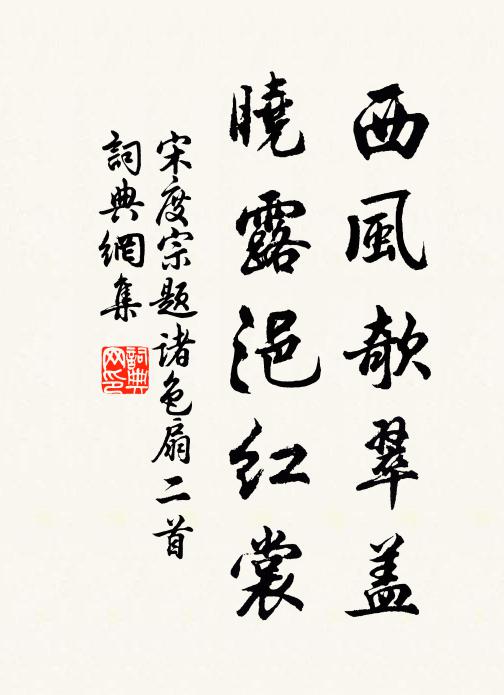 西風欹翠蓋
曉露浥红裳
宋度宗题诸色扇二首
詞典網集
詞典网印